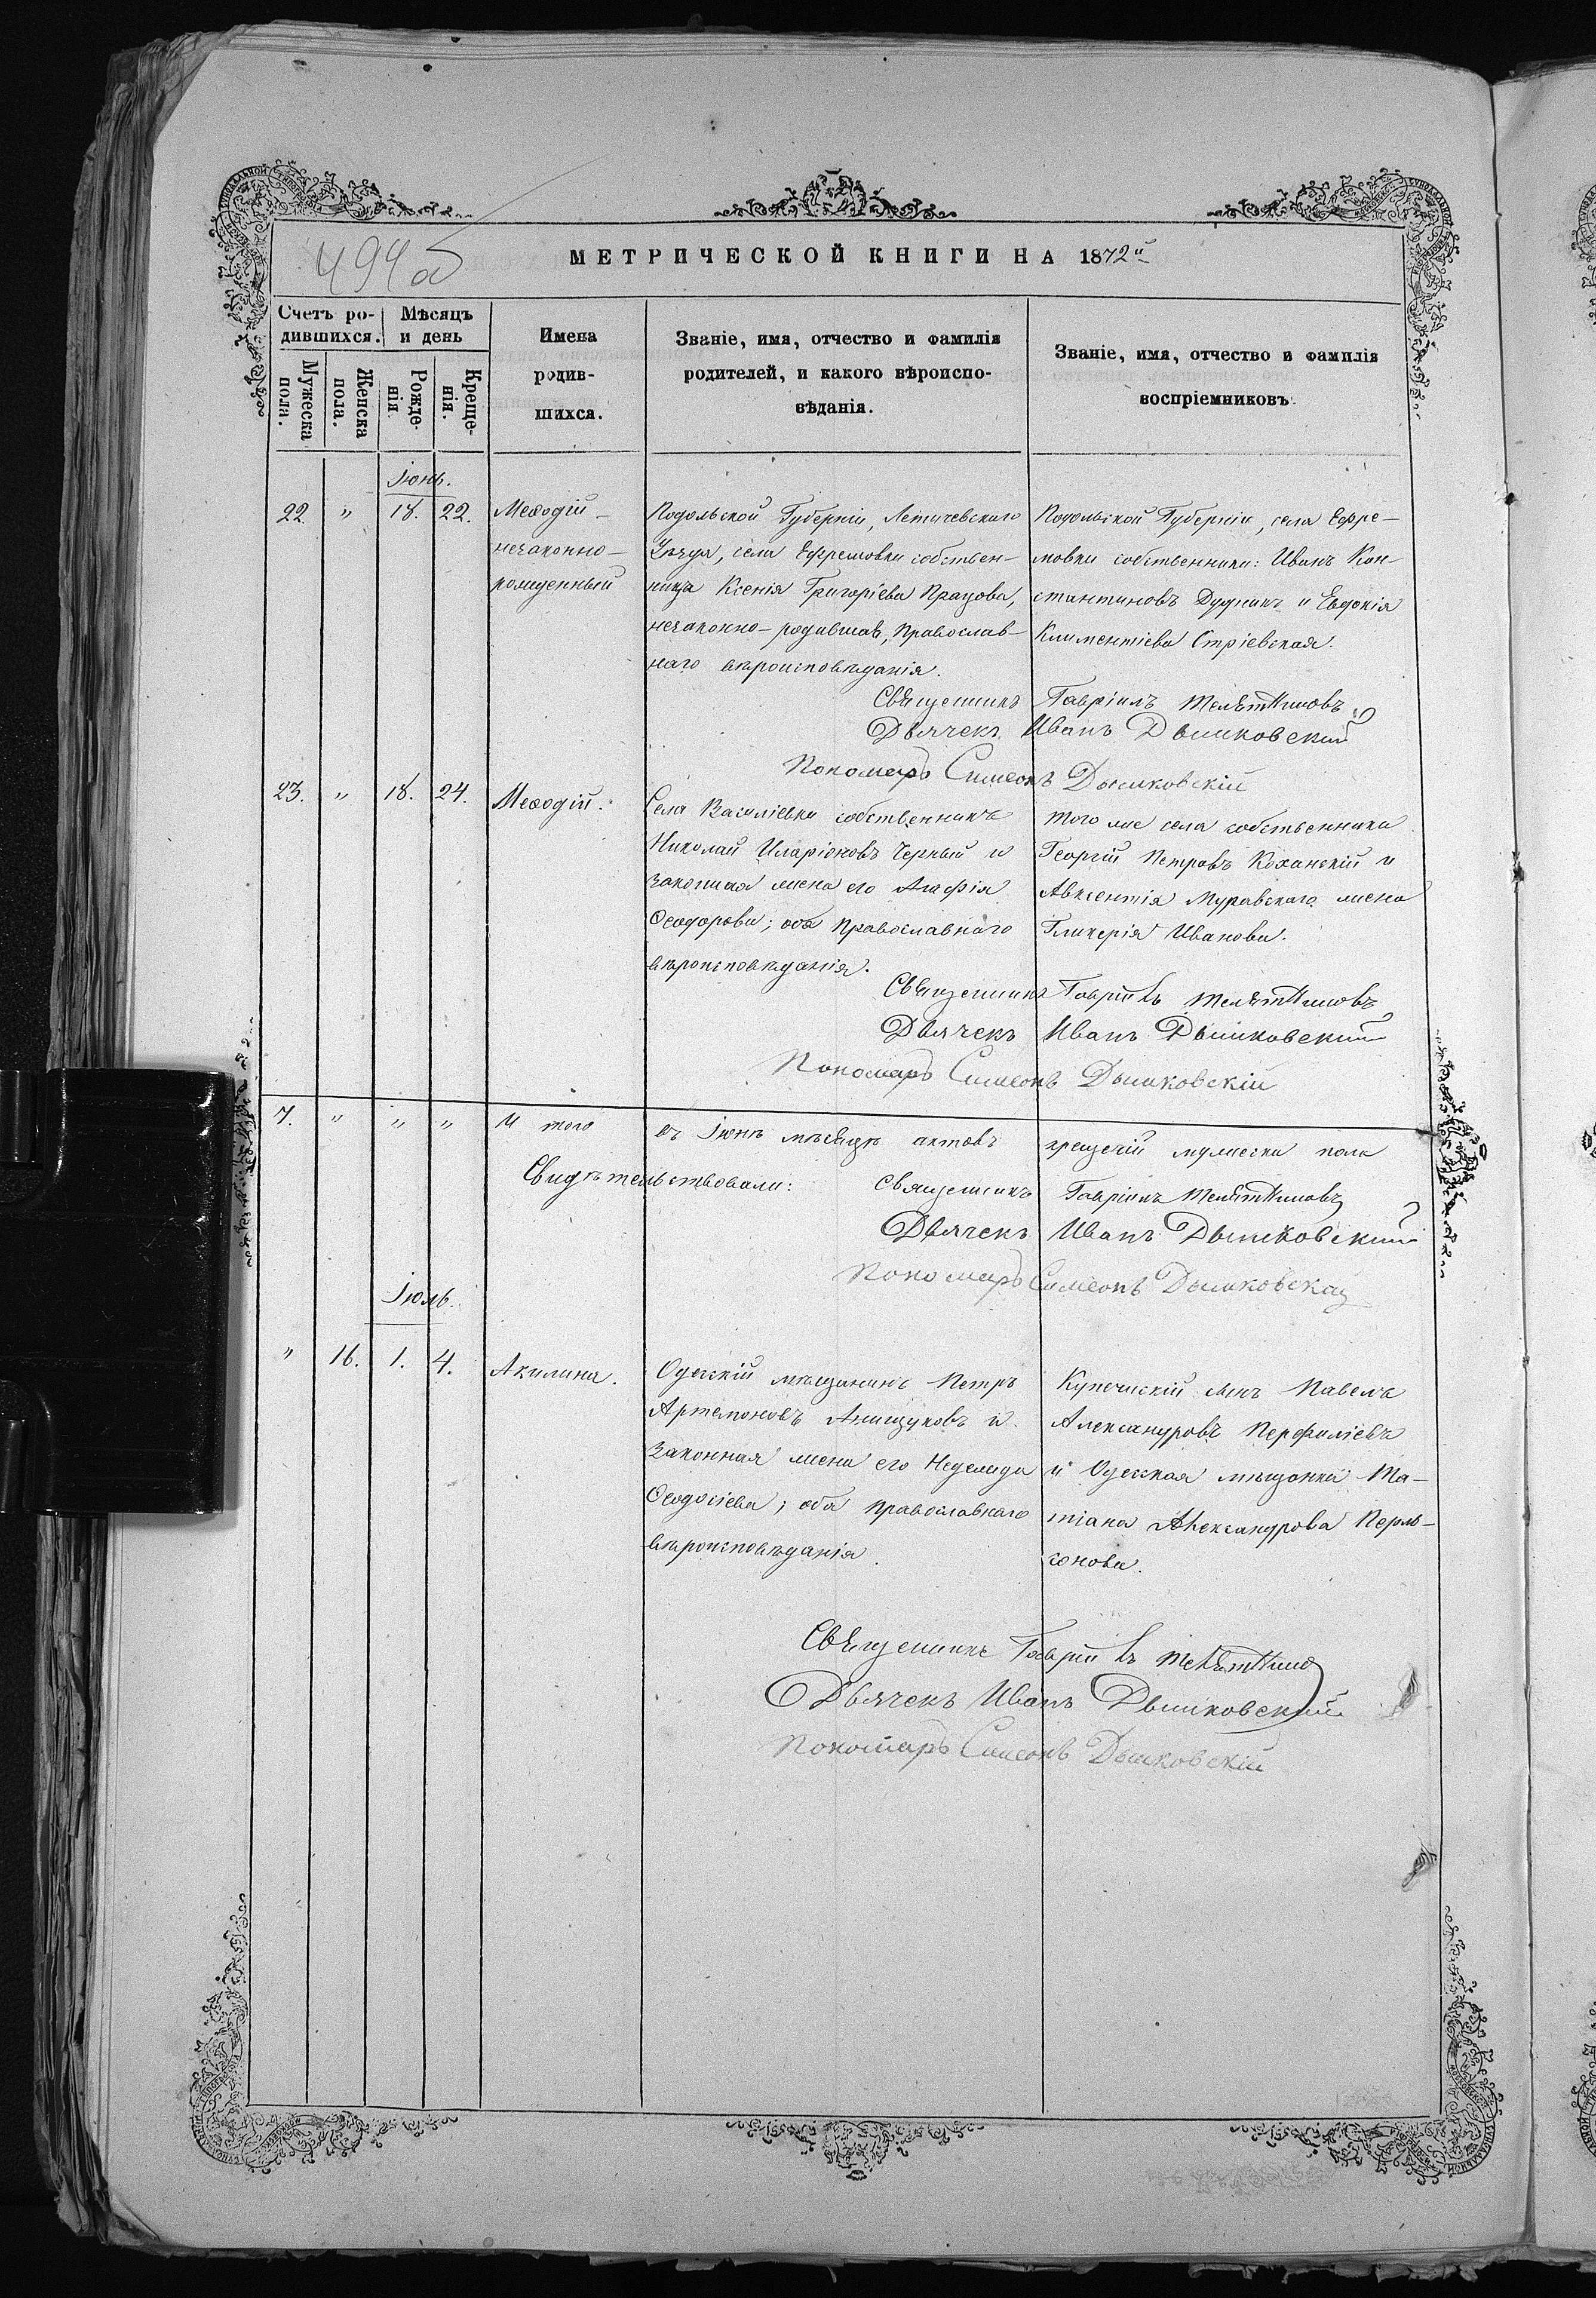 494об
МЕТРИЧЕСКОЙ КНИГИ НА 1872й
Счетъ ро-
дившихся.
Мѣсяцъ
и день
Мужеска
пола.
Женска
пола.
Рожде-
нія.
Креще-
нія.
Имена
родив-
шихся.
Званіе, имя, отчество и фамилія
родителей, и какого вѣроиспо-
вѣданія.
Званіе, имя, отчество и фамилія
воспріемниковъ.
Іюнь.
22. " 18. 22.
Меѳодій –
незаконно–
рожденный
Подольской Губерніи, Летичевскаго
Уѣзда, села Ефремовки собствен-
ница Ксенія Григоріева
незаконно-родившая, православ-
наго вѣроисповѣданія.
Подольской Губерніи, села Ефре-
мовки собственники: Иванъ Кон-
стантиновъ Дудникъ и Евдокія
Климентіева Стріевская.
Священникъ Гавріилъ
Дьячекъ Иванъ Дышковский
Пономарь Симеонъ Дышковскій
23. " 18. 24.
Меѳодій.
Села Василіевки собственникъ
Николай Иларіоновъ Черный и
законная жена его Агафія
Ѳеодорова; оба православнаго
вѣроисповѣданія.
того же села собственники
Георгій Петровъ Коханскій и
Авксентія Муравскаго жена
Гликерія Иванова.
Священникъ Гавріилъ
Дьячекъ Иванъ Дышковский
Пономарь Симеонъ Дышковскій
7. " " " И того въ Іюнѣ мѣсяцѣ актовъ крещеній мужеска пола
Свидѣтельствовали: Священникъ Гавріилъ
Дьячекъ Иванъ Дышковский
Пономарь Симеонъ Дышковскій
Іюль.
" 16. 1. 4.
Акилина.
Одесскій мѣщанинъ Петръ
Артемоновъ Анищуковъ и
законная жена его
Ѳеодосіева; оба православнаго
вѣроисповѣданія.
Купеческій сынъ Павелъ
Александровъ Перфиліевъ
и Одесская мѣщанка Та-
тіана Александрова
Священникъ Гавріилъ
Дьячекъ Иванъ Дышковский
Пономарь Симеонъ Дышковскій